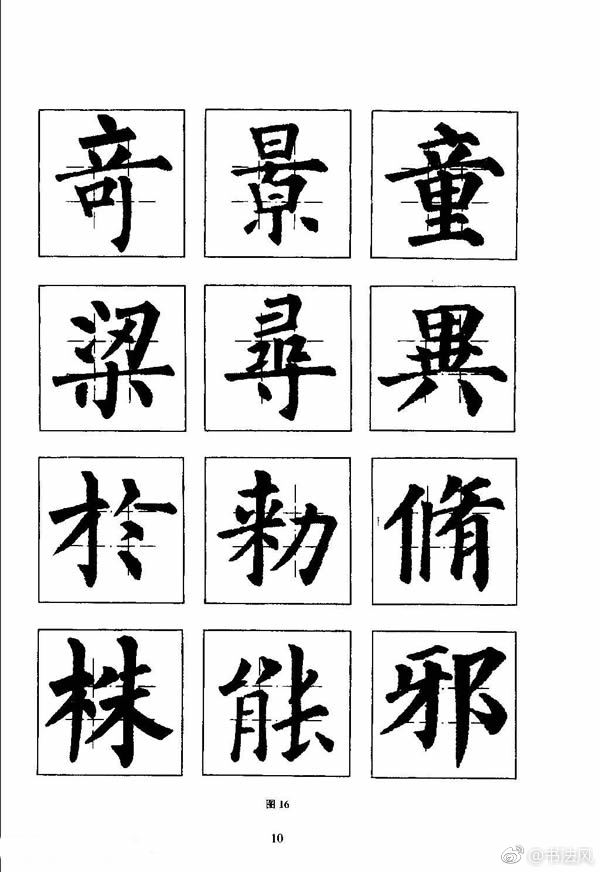 奇 景 童
梁 尋 異
於 勑 脩
株 能 邪
图 16
10
@书法风